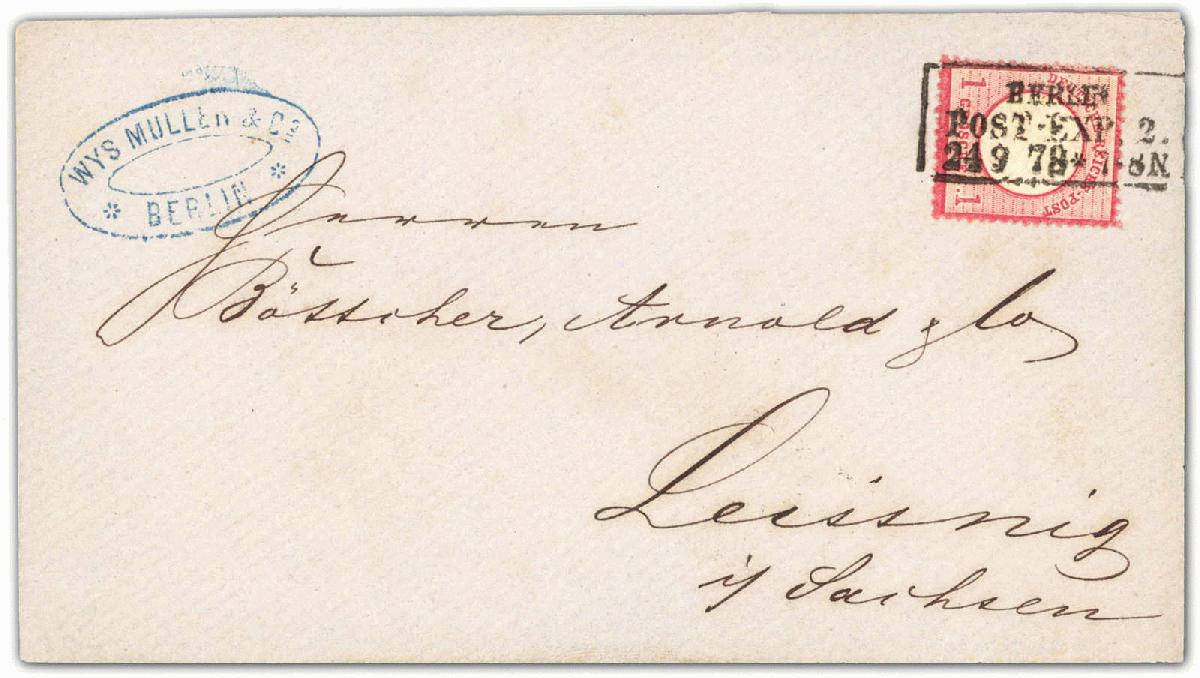 WYS MULLER & Co
* BERLIN *
BERLIN
POST-EXP. 2.
24 9 72* 7-8N
DEUTSCHE REICHS-POST
1
1
Herren
Bötscher, Arnold & Co
Leissnig
i/ Sachsen